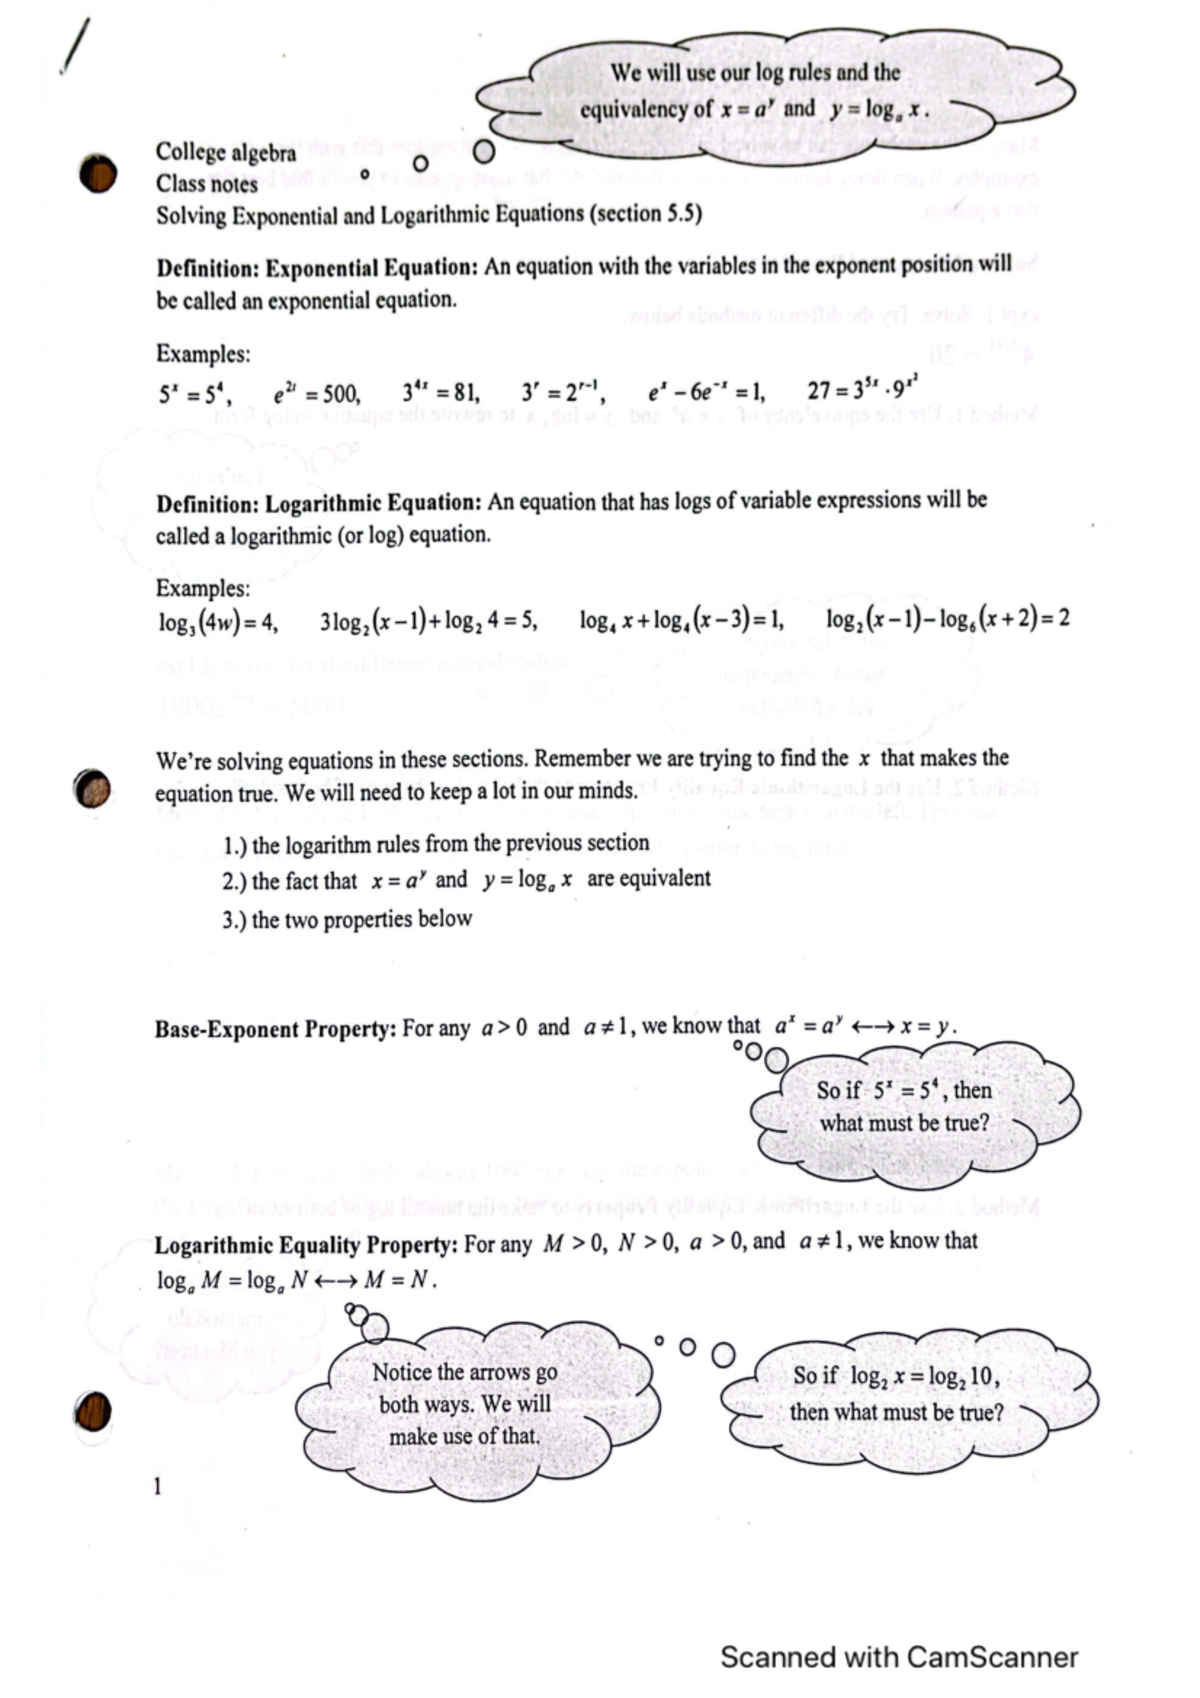 We will use our log rules and the
equivalency of x = a^y and y = log_a x.
College algebra
Class notes
Solving Exponential and Logarithmic Equations (section 5.5)
Definition: Exponential Equation: An equation with the variables in the exponent position will
be called an exponential equation.
Examples:
5^x = 5^4, e^{2t} = 500, 3^{4x} = 81, 3^r = 2^{r-1}, e^x - 6e^{-x} = 1, 27 = 3^{5x} · 9^{x^2}
Definition: Logarithmic Equation: An equation that has logs of variable expressions will be
called a logarithmic (or log) equation.
Examples:
log_3(4w) = 4, 3log_2(x-1) + log_2 4 = 5, log_4 x + log_4(x-3) = 1, log_2(x-1) - log_6(x+2) = 2
We're solving equations in these sections. Remember we are trying to find the x that makes the
equation true. We will need to keep a lot in our minds.
1.) the logarithm rules from the previous section
2.) the fact that x = a^y and y = log_a x are equivalent
3.) the two properties below
Base-Exponent Property: For any a > 0 and a ≠ 1, we know that a^x = a^y ←→ x = y.
So if 5^x = 5^4, then
what must be true?
Logarithmic Equality Property: For any M > 0, N > 0, a > 0, and a ≠ 1, we know that
log_a M = log_a N ←→ M = N.
Notice the arrows go
both ways. We will
make use of that.
So if log_2 x = log_2 10,
then what must be true?
1
Scanned with CamScanner